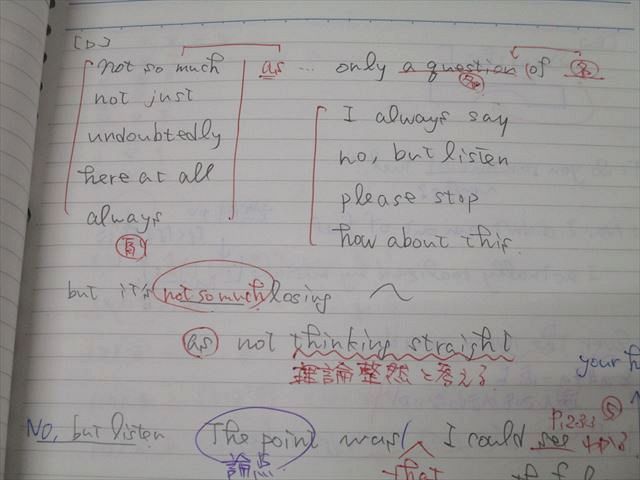 [D]
not so much as ... only a question of 名
名
not just
undoubtedly
here at all
always
副
I always say
no, but listen
please stop
how about this.
but it's not so much losing 〜
as not thinking straight
理論整然と考える
your h
P,233 ⑤
No, but listen The point was(, I could see わかる
論点 that